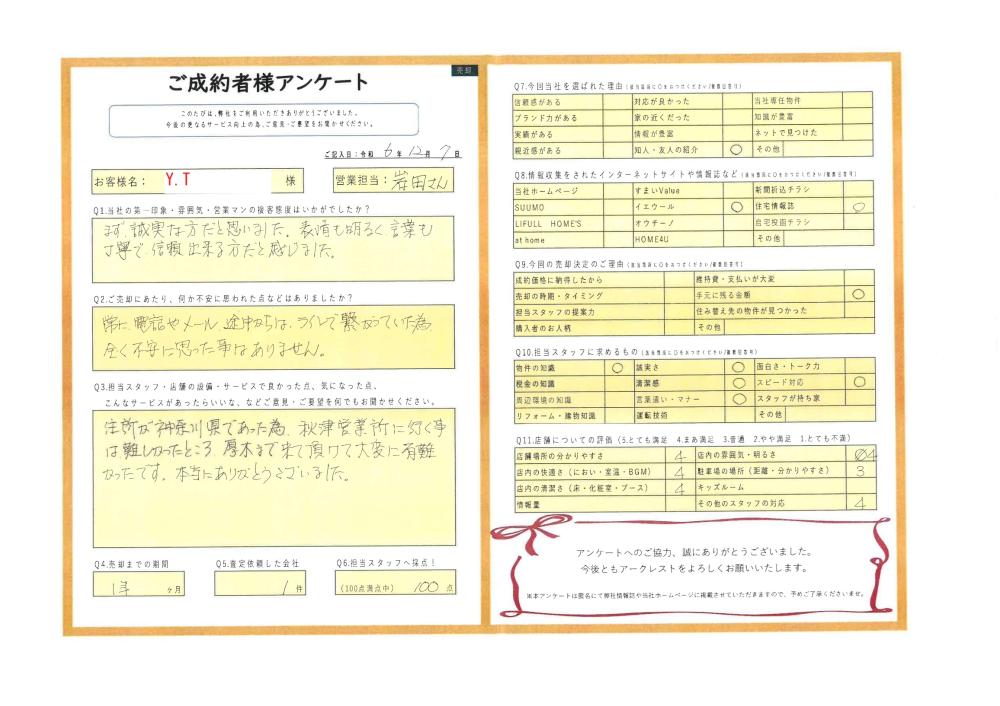 売却
ご成約者様アンケート
このたびは、弊社をご利用いただきありがとうございました。
今後の更なるサービス向上の為、ご意見・ご要望をお聞かせください。
ご記入日：令和 6 年 12 月 7 日
お客様名： Y.T 様
営業担当： 岸田さん
Q1.当社の第一印象・雰囲気・営業マンの接客態度はいかがでしたか？
まず、誠実な方だと思いました。表情も明るく、言葉も
丁寧で、信頼出来る方だと感じました。
Q2.ご売却にあたり、何か不安に思われた点などはありましたか？
常に、電話やメール、途中からは、ラインで繋がっていた為
全く不安に思った事はありません。
Q3.担当スタッフ・店舗の設備・サービスで良かった点、気になった点、
こんなサービスがあったらいいな、などご意見・ご要望を何でもお聞かせください。
住所が神奈川県であった為、秋津営業所に行く事
は難しかったところ、厚木まで来て頂けて大変に有難
かったです。本当にありがとうございました。
Q4.売却までの期間
1年 ヶ月
Q5.査定依頼した会社
1 件
Q6.担当スタッフへ採点！
(100点満点中) 100 点
Q7.今回当社を選ばれた理由 (該当箇所に○をおつけください/複数回答可)
信頼感がある 対応が良かった 当社専任物件
ブランド力がある 家の近くだった 知識が豊富
実績がある 情報が豊富 ネットで見つけた
親近感がある 知人・友人の紹介 ○ その他
Q8.情報収集をされたインターネットサイトや情報誌など (該当箇所に○をおつけください/複数回答可)
当社ホームページ すまいValue 新聞折込チラシ
SUUMO イエウール ○ 住宅情報誌 ○
LIFULL HOME'S オウチーノ 自宅投函チラシ
at home HOME4U その他
Q9.今回の売却決定のご理由 (該当箇所に○をおつけください/複数回答可)
成約価格に納得したから 維持費・支払いが大変
売却の時期・タイミング 手元に残る金額 ○
担当スタッフの提案力 住み替え先の物件が見つかった
購入者のお人柄 その他
Q10.担当スタッフに求めるもの (該当箇所に○をおつけください/複数回答可)
物件の知識 ○ 誠実さ ○ 面白さ・トーク力
税金の知識 清潔感 ○ スピード対応 ○
周辺環境の知識 言葉遣い・マナー ○ スタッフが持ち家
リフォーム・建物知識 運転技術 その他
Q11.店舗についての評価 (5.とても満足 4.まあ満足 3.普通 2.やや満足 1.とても不満)
店舗場所の分かりやすさ 4 店内の雰囲気・明るさ 4
店内の快適さ (におい・室温・BGM) 4 駐車場の場所 (距離・分かりやすさ) 3
店内の清潔さ (床・化粧室・ブース) 4 キッズルーム
情報量 その他のスタッフの対応 4
アンケートへのご協力、誠にありがとうございました。
今後ともアークレストをよろしくお願いいたします。
※本アンケートは匿名にて弊社情報誌や当社ホームページに掲載させていただきますので、予めご了承くださいませ。